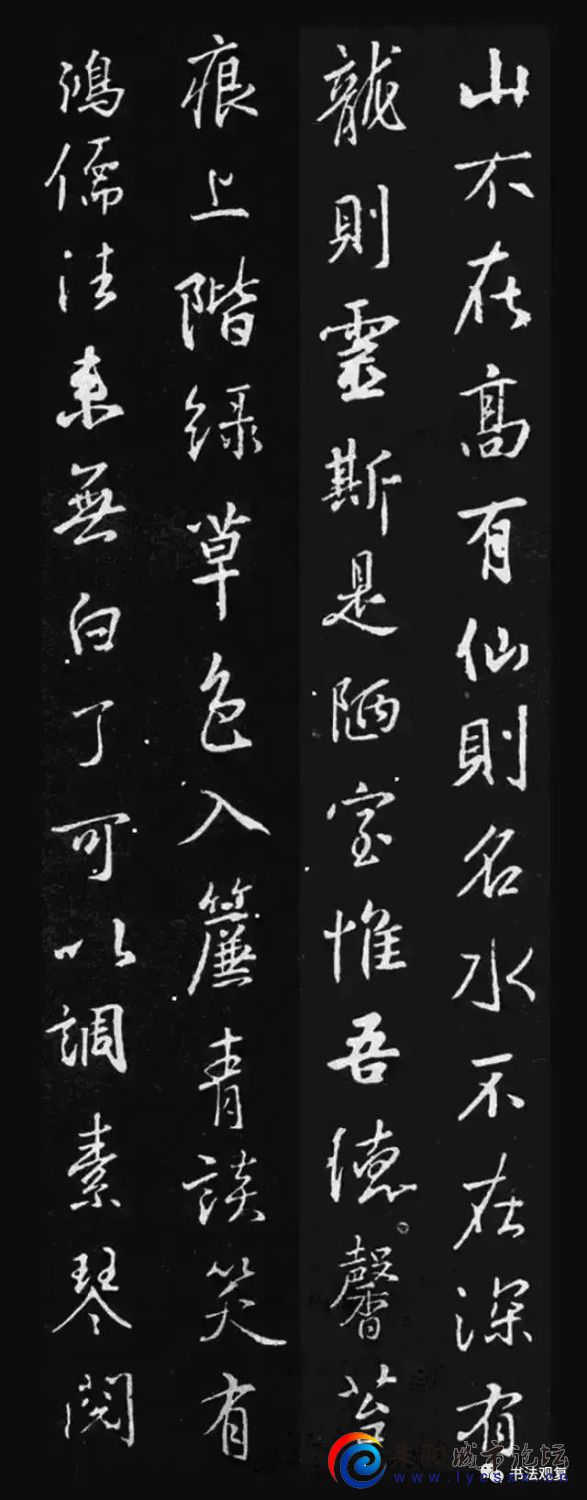 山不在高有仙則名水不在深有
龍則靈斯是陋室惟吾德馨苔
痕上階綠草色入簾青談笑有
鴻儒往來無白丁可以調素琴閱
耒阳城市论坛
书法观复